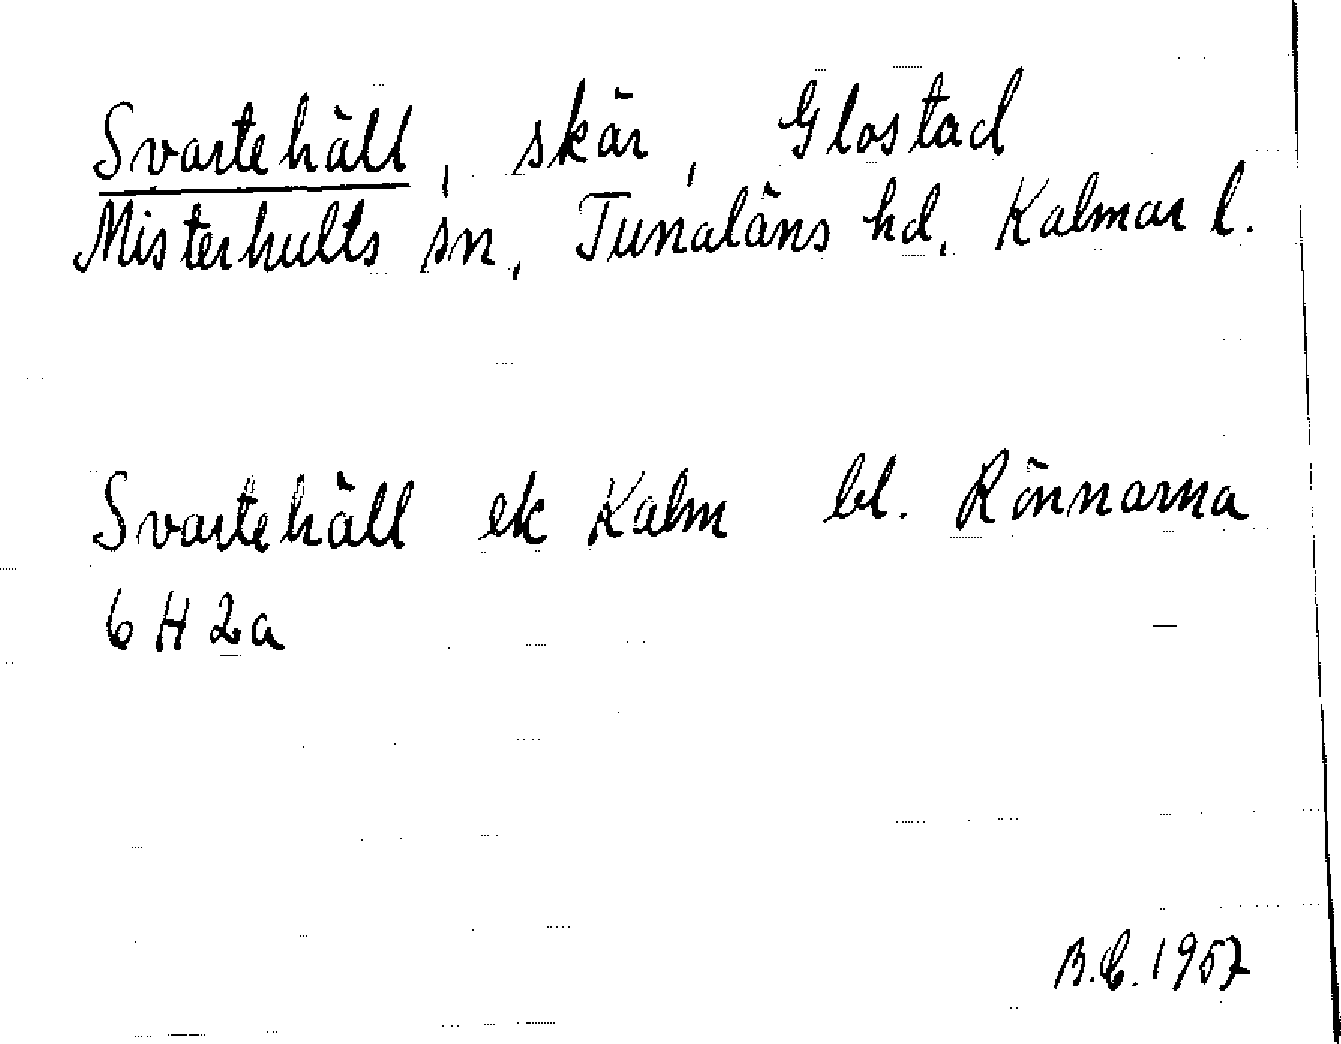 Svartehäll, skär, Glostad
Misterhults sn, Tunaläns hd, Kalmar l.
Svartehäll ek Kalm bl. Rönnarna
6 H 2a
B.E. 1957